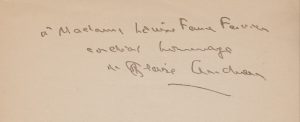 à Madame Louise Faure Favier
cordial hommage
de Blaise Cendrars